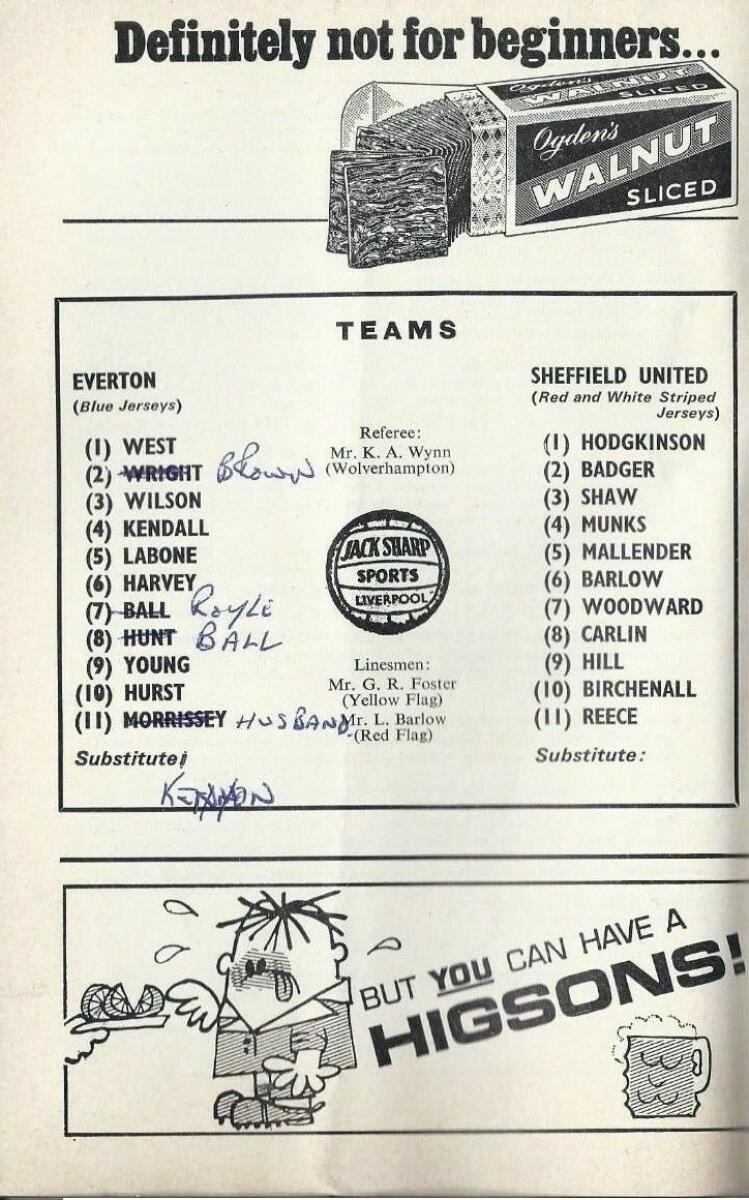 Definitely not for beginners...
Ogden's
WALNUT
SLICED
Ogden's
WALNUT
SLICED
TEAMS
EVERTON
(Blue Jerseys)
(1) WEST
(2) WRIGHT Brown
(3) WILSON
(4) KENDALL
(5) LABONE
(6) HARVEY
(7) BALL ROYLE
(8) HUNT BALL
(9) YOUNG
(10) HURST
(11) MORRISSEY HUSBAND
Substitute:
Referee:
Mr. K. A. Wynn
(Wolverhampton)
JACK SHARP
SPORTS
LIVERPOOL
Linesmen:
Mr. G. R. Foster
(Yellow Flag)
Mr. L. Barlow
(Red Flag)
SHEFFIELD UNITED
(Red and White Striped
Jerseys)
(1) HODGKINSON
(2) BADGER
(3) SHAW
(4) MUNKS
(5) MALLENDER
(6) BARLOW
(7) WOODWARD
(8) CARLIN
(9) HILL
(10) BIRCHENALL
(11) REECE
Substitute:
BUT YOU CAN HAVE A
HIGSONS!